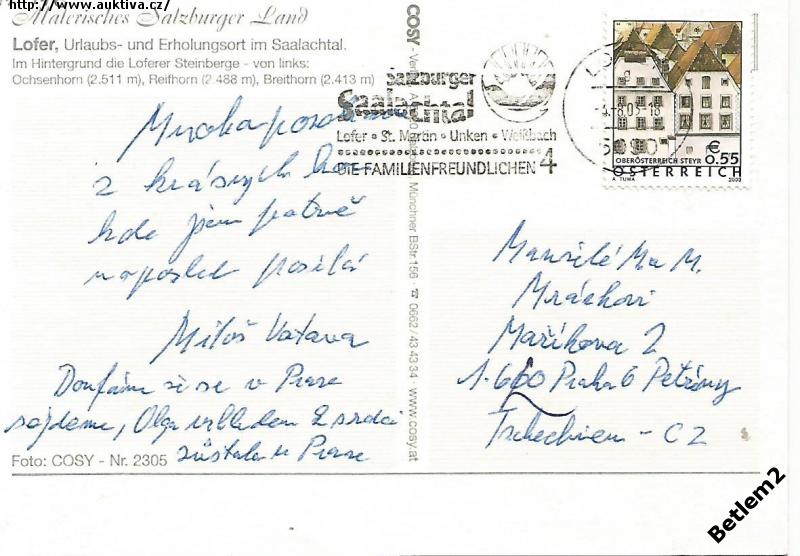 http://www.auktiva.cz/
Malerisches Salzburger Land
Lofer, Urlaubs- und Erholungsort im Saalachtal.
Im Hintergrund die Loferer Steinberge - von links:
Ochsenhorn (2.511 m), Reifhorn (2 488 m), Breithorn (2.413 m)
z krásných hor
kde jsem patrně
naposled posílá
Miloš Vatava
Doufám že se v Praze
sejdeme, Olga vzhledem k srdci
zůstala v Praze
Foto: COSY - Nr. 2305
COSY
Münchner BStr. 156 ☎ 0662/43 43 34 · www.cosy.at
Salzburger
Saalachtal
Lofer • St. Martin • Unken • Weißbach
DIE FAMILIENFREUNDLICHEN 4
5090
€
OBERÖSTERREICH STEYR 0.55
ÖSTERREICH
A. TUMA 2003
Manželé Ma M.
Mráčkovi
Maříkova 2
Praha 6 Petřiny
Tschechien - CZ
Betlem2